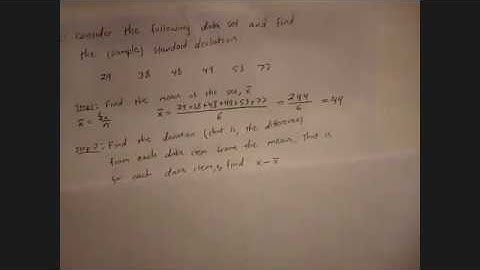 Consider the following data set and find
the (sample) standard deviation
29 38 48 49 53 77
Step 1: Find the mean of the set, x̄
x̄ = Σx/n x̄ = 29+38+48+49+53+77/6 = 294/6 = 49
Step 2: Find the deviation (that is, the difference)
from each data item from the mean. That is
for each data item, find x - x̄